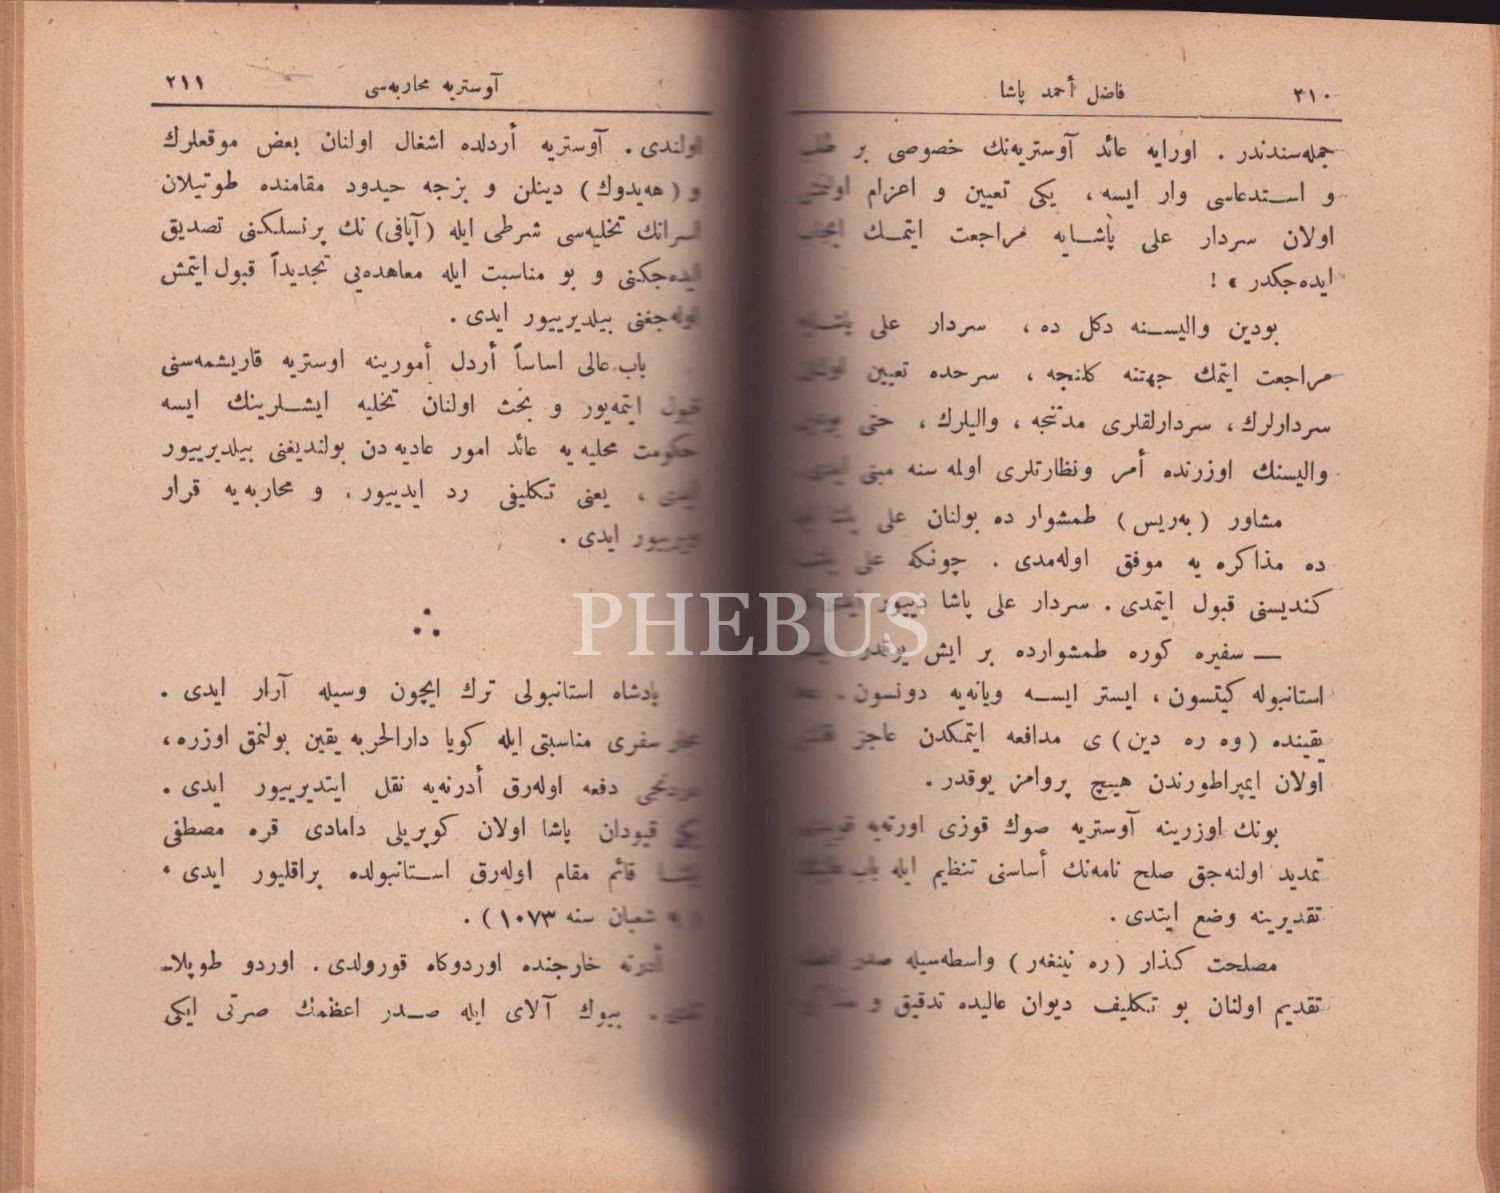 ٢١٠ فاضل أحمد پاشا
جمله‌سندندر . اورایه عائد آوستریه‌نك خصوصی بر طلب
و استدعاسی وار ایسه ، یكی تعیین و اعزام
اولان سردار علی پاشایه مراجعت ایتمك ایجاب
ایده‌جكدر » !
بودین والیسنه دكل ده ، سردار علی پاشایه
مراجعت ایتمك جهتنه كلنجه ، سرحده تعیین اولنان
سردارلرك ، سردارلقلری مدتنجه ، والیلرك ، حتی بودین
والیسنك اوزرنده أمر ونظارتلری اولمه سنه مبنی ایدی
مشاور (به‌ریس) طمشوار ده بولنان علی پاشا
ده مذاكره یه موفق اوله‌مدی . چونكه علی پاشا
كندیسنی قبول ایتمدی . سردار علی پاشا دییور
— سفیره كوره طمشوارده بر ایش یوقدر
استانبوله كیتسون ، ایستر ایسه ویانه‌یه دونسون .
یقینده (وه ره دین) ی مدافعه ایتمكدن عاجز
اولان ایمپراطورندن هیچ پروامز یوقدر .
بونك اوزرینه آوستریه صوك قوزی اورته‌یه
تمدید اولنه‌جق صلح نامه‌نك أساسنی تنظیم ایله باب
تقدیرینه وضع ایتدی .
مصلحت كذار (ره نینغه‌ر) واسطه‌سیله صدر
تقدیم اولنان بو تكلیف دیوان عالیده تدقیق و
آوستریه محاربه‌سی ٢١١
اولندی . آوستریه أردلده اشغال اولنان بعض موقعلرك
و (هه‌یدوك) دینلن و بزجه حیدود مقامنده طوتیلان
اسرانك تخلیه‌سی شرطی ایله (آپافی) نك پرنسلكنی تصدیق
ایده‌جكنی و بو مناسبت ایله معاهده‌یی تجدیداً قبول ایتمش
اوله‌جغنی بیلدیرییور ایدی .
باب عالی اساساً أردل أمورینه اوستریه قاریشمه‌سنی
قبول ایتمه‌یور و بحث اولنان تخلیه ایشلرینك ایسه
حكومت محلیه یه عائد امور عادیه دن بولندیغنی بیلدیرییور
ایدی ، یعنی تكلیفی رد ایدییور . و محاربه‌یه قرار
ویرییور ایدی .
∴
پادشاه استانبولی ترك ایچون وسیله آرار ایدی .
سفری مناسبتی ایله كویا دارالحربه یقین بولنمق اوزره ،
دفعه اوله‌رق أدرنه‌یه نقل ایتدیرییور ایدی .
یكی قپودان پاشا اولان كوپریلی دامادی قره مصطفی
پاشا قائم مقام اوله‌رق استانبولده براقلیور ایدی
شعبان سنه ١٠٧٣) .
أدرنه خارجنده اوردوكاه قورولدی . اوردو طوپلا-
بیوك آلای ایله صدر اعظمك صرتی ایكی
PHEBUS